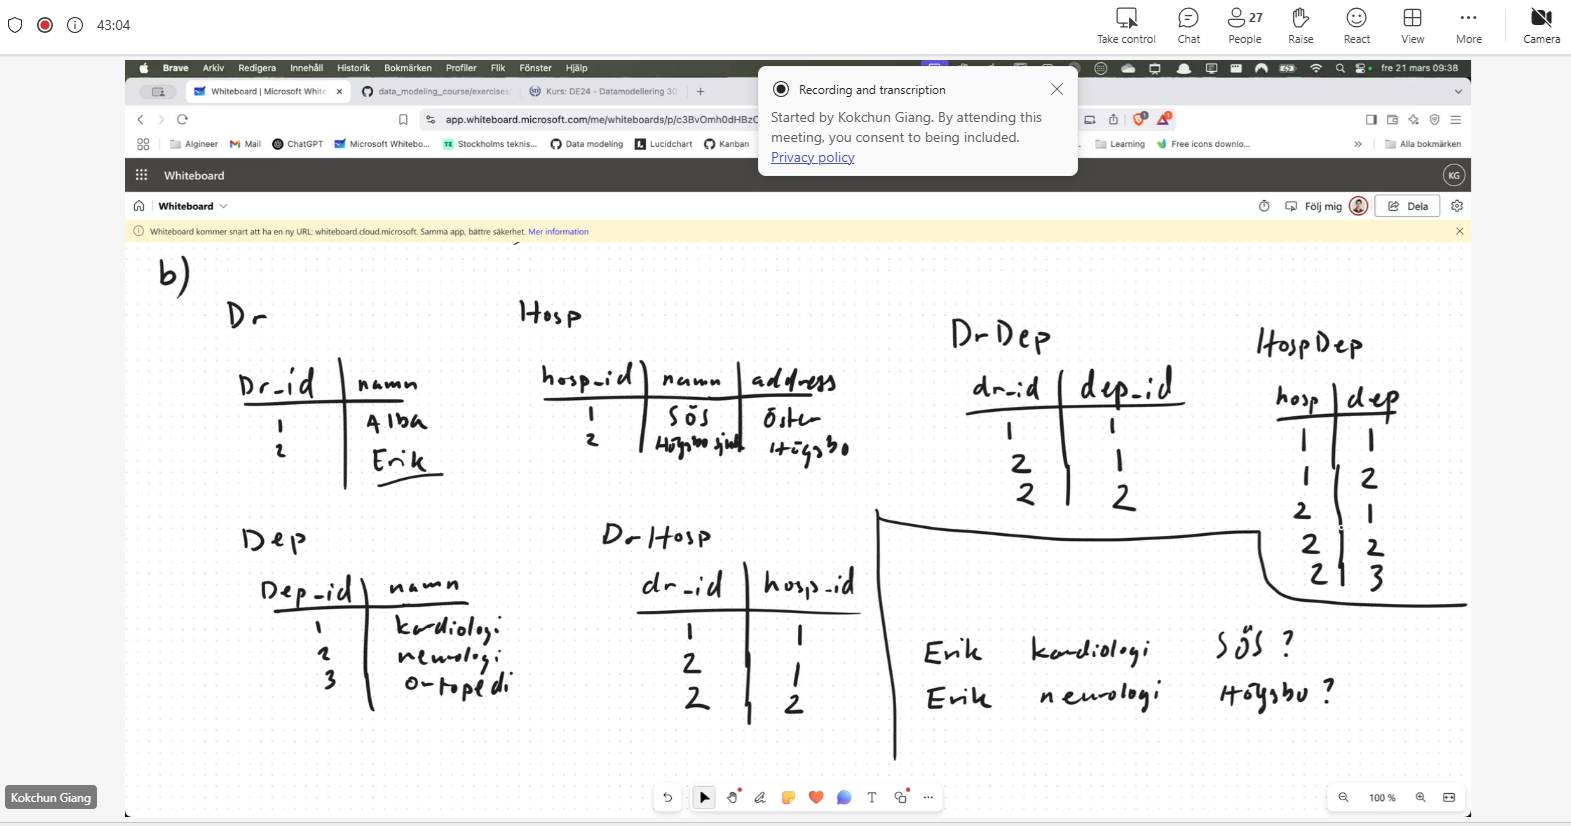 43:04
Take control
Chat
27
People
Raise
React
View
More
Camera
Brave Arkiv Redigera Innehåll Historik Bokmärken Profiler Flik Fönster Hjälp
fre 21 mars 09:38
Whiteboard | Microsoft White
data_modeling_course/exercises
Kurs: DE24 - Datamodellering 30
app.whiteboard.microsoft.com/me/whiteboards/p/c3BvOmh0dHBzO
Algineer
Mail
ChatGPT
Microsoft Whitebo...
Stockholms teknis...
Data modeling
Lucidchart
Kanban
Learning
Free icons downlo...
Alla bokmärken
Recording and transcription
Started by Kokchun Giang. By attending this
meeting, you consent to being included.
Privacy policy
Whiteboard
KG
Whiteboard
Följ mig
Dela
Whiteboard kommer snart att ha en ny URL: whiteboard.cloud.microsoft. Samma app, bättre säkerhet. Mer information
b)
Dr
Dr_id namn
1 Alba
2 Erik
Hosp
hosp_id namn address
1 SÖS Öster
2 Högsbo Högsbo
DrDep
dr_id dep_id
1 1
2 1
2 2
HospDep
hosp dep
1 1
1 2
2 1
2 2
2 3
Dep
Dep_id namn
1 kardiologi
2 neurologi
3 ortopedi
DrHosp
dr_id hosp_id
1 1
2 1
2 2
Erik kardiologi SÖS?
Erik neurologi Högsbo?
Kokchun Giang
100 %